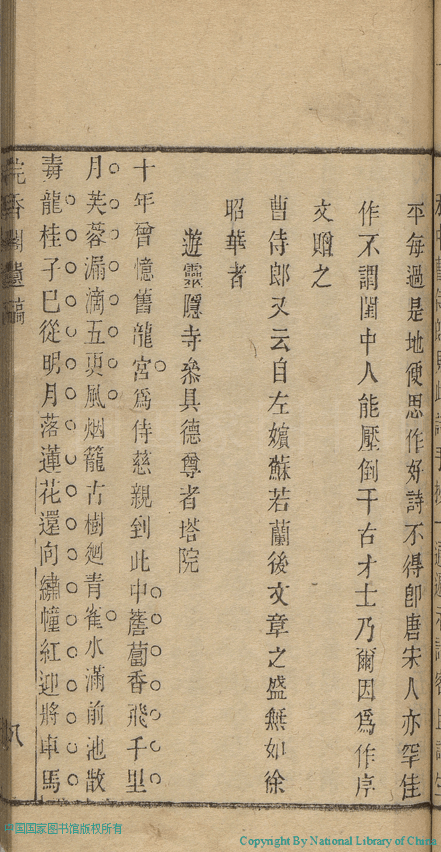 平每過是地便思作好詩不得卽唐宋人亦罕佳
作不謂閨中人能壓倒千古才士乃爾因爲作序
文贈之
曹侍郎又云自左嬪蘇若蘭後文章之盛無如徐
昭華者
遊靈隱寺叅具德尊者塔院
十年曾憶舊龍宮爲侍慈親到此中薝蔔香飛千里
月芙蓉漏滴五更風烟籠古樹廻青雀水滿前池散
毒龍桂子已從明月落蓮花還向繡幢紅迎將車馬
八
中国国家图书馆版权所有
Copyright By National Library of China